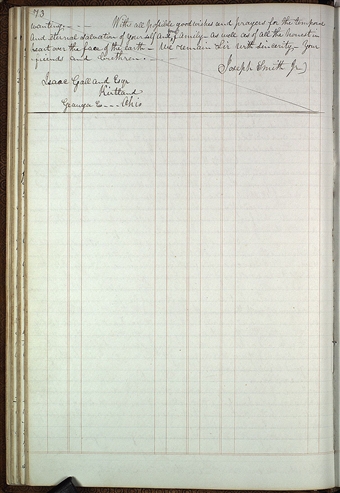 73
wanting.— — With all possible good wishes and prayers for the temporal
and eternal salvation of yourself and family— as well as of all the honest in
heart over the face of the earth— We remain Sir with sincerity— Your
friends and brethren.—
Joseph Smith Jr)
Isaac Galland Esqr
Kirtland
Geauga Co— — — Ohio